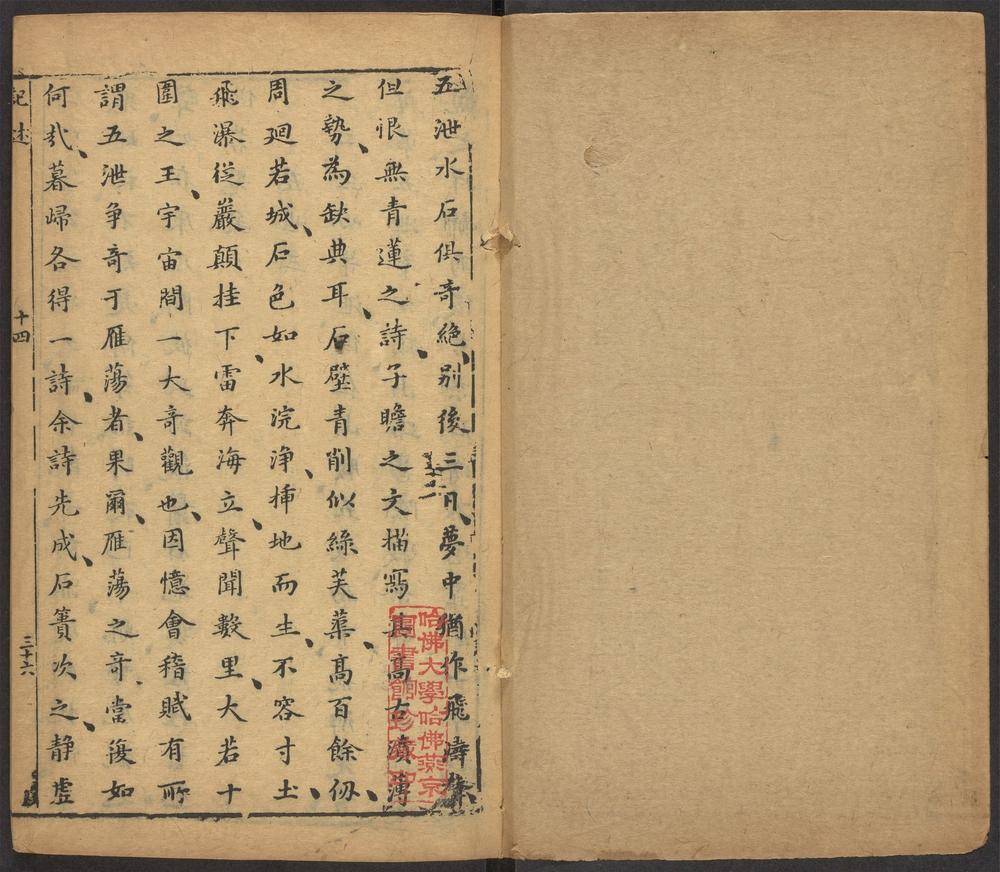 五泄水石俱奇絶、別後三日、夢中猶作飛濤聲
但恨無青蓮之詩、子瞻之文描寫其高古濆薄、
之勢、為缺典耳、石壁青削似綠芙蕖、高百餘仞、
周廻若城、石色如水浣浄、揷地而生、不容寸土、
飛瀑從巖顛挂下、雷奔海立、聲聞數里、大若十
圍之王、宇宙間一大奇觀也、因憶會稽賦有所
謂五泄爭奇于雁蕩者、果爾、雁蕩之奇、當復如
何哉、暮歸各得一詩、余詩先成、石簣次之、靜虛
記述 十四 三十六
哈佛大學哈佛燕京
圖書館珍藏印